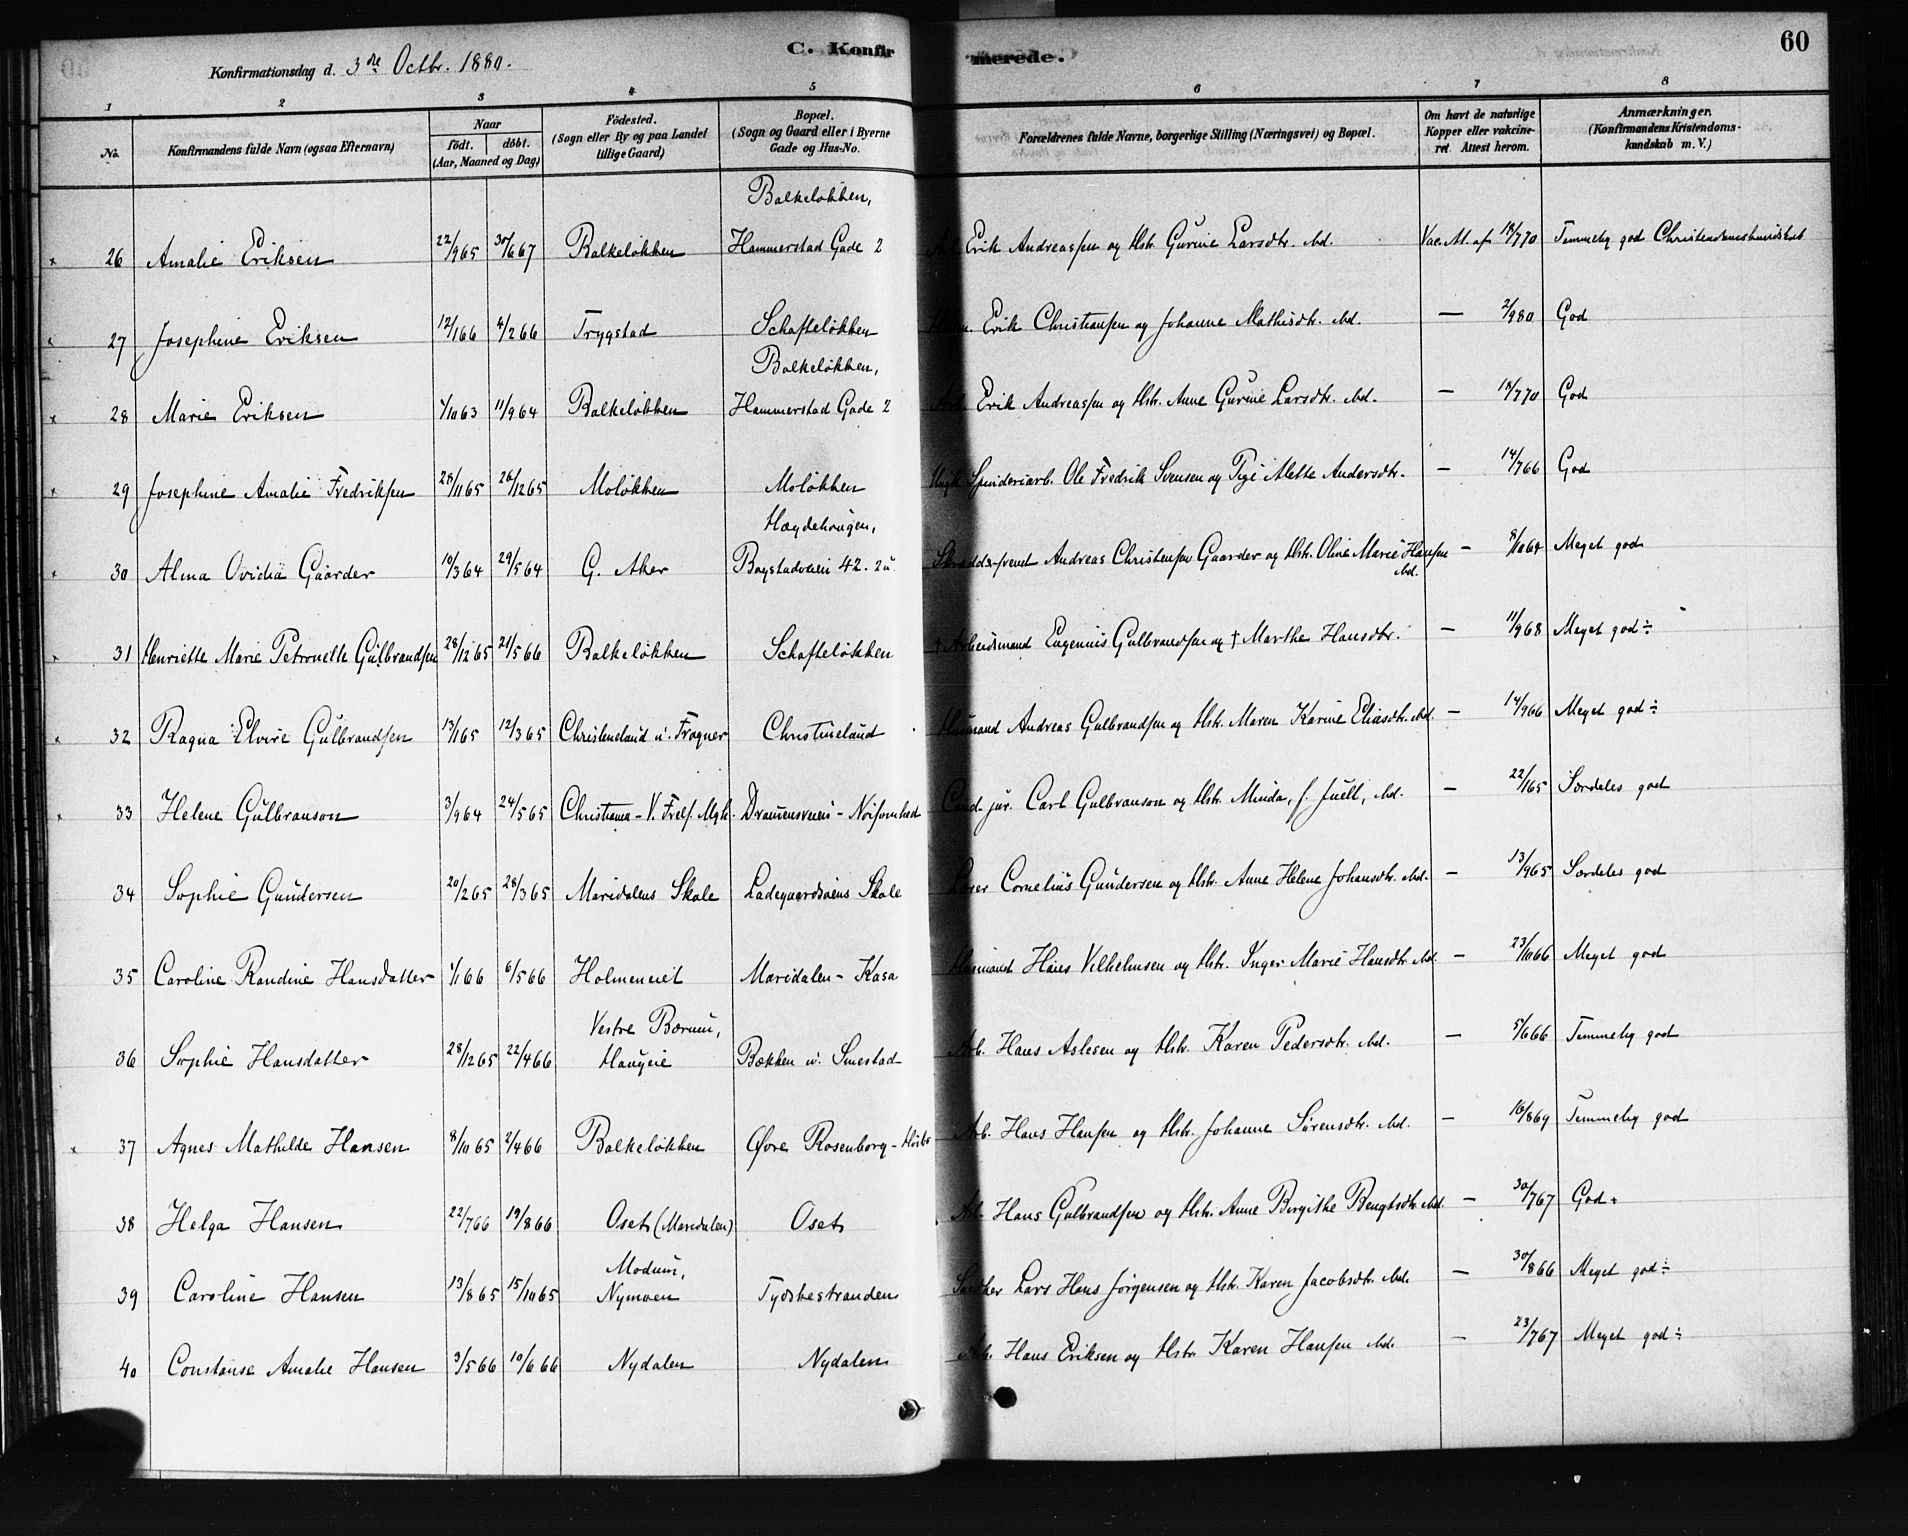 60
C. Konfirmerede.
Konfirmationsdag d. 3die Octbr. 1880.
1 2 3 4 5 6 7 8
No.
Konfirmandens fulde Navn (ogsaa Efternavn)
Naar
födt. döbt.
(Aar, Maaned og Dag)
Födested.
(Sogn eller By og paa Landet
tillige Gaard)
Bopæl.
(Sogn og Gaard eller i Byerne
Gade og Hus-No.
Forældrenes fulde Navne, borgerlige Stilling (Næringsvei) og Bopæl.
Om havt de naturlige
Kopper eller vakcine-
ret. Attest herom.
Anmærkninger.
(Konfirmandens Kristendoms-
kundskab m. V.)
Balkeløkken,
26 Amalie Eriksen 22/9 65 30/6 67 Balkeløkken Hammerstad Gade 2 Arb. Erik Andreassen og Hstr. Gurine Larsdtr. ibd. Vac. At. af 18/7 70 Temmelig god Christendomskundskab
27 Josephine Eriksen 12/1 66 4/2 66 Trygstad Schafteløkken Erik Christiansen og Johanne Mathisdtr. ibd. — 2/9 80 God
Balkeløkken,
28 Marie Eriksen 1/10 63 11/9 64 Balkeløkken Hammerstad Gade 2 Arb. Erik Andreassen og Hstr. Anne Gurine Larsdtr. ibd. — 18/7 70 God
29 Josephine Amalie Fredriksen 28/11 65 26/12 65 Moløkken Moløkken Ungk. Spinderiarb. Ole Fredrik Svensen og Pige Mette Andersdtr. — 14/7 66 God
Hægdehaugen,
30 Alma Ovidia Gaarder 10/3 64 29/5 64 G. Aker Bogstadveien 42. Skræddersvend Andreas Christensen Gaarder og Hstr. Oline Marie Hansen ibd. — 8/10 64 Meget god
31 Henriette Marie Petronelle Gulbrandsen 28/12 65 21/5 66 Balkeløkken Schafteløkken † Arbeidsmand Eugenius Gulbrandsen og † Marthe Hansdtr. — 11/9 68 Meget god ÷
32 Ragna Elvire Gulbrandsen 13/1 65 12/3 65 Christineland u. Frogner Christineland Husmand Andreas Gulbrandsen og Hstr. Maren Karine Eliasdtr. ibd. — 14/9 66 Meget god ÷
33 Helene Gulbranson 3/9 64 24/5 65 Christiania - V. Frels. Mgh. Drammensveien - Cand. jur. Carl Gulbranson og Hstr. Minda, f. Juell, ibd. — 22/1 65 Særdeles god
34 Sophie Gundersen 20/2 65 28/3 65 Maridalens Skole Ladegaardsøens Skole Lærer Cornelius Gundersen og Hstr. Anne Helene Johansdtr. ibd. — 13/9 65 Særdeles god
35 Caroline Randine Hansdatter 1/1 66 6/5 66 Holmeneiet Maridalen - Kasa Husmand Hans Vilhelmsen og Hstr. Inger Marie Hansdtr. ibd. — 23/10 66 Meget god
Vestre Bærum,
36 Sophie Hansdatter 28/12 65 22/4 66 Haugeie Bækken u. Smestad Arb. Hans Aslesen og Hstr. Karen Pedersdtr. ibd. — 5/6 66 Temmelig god
37 Agnes Mathilde Hansen 8/10 65 2/4 66 Balkeløkken Øvre Rosenborg - Arb. Hans Hansen og Hstr. Johanne Sørensdtr. ibd. — 16/8 69 Temmelig god
38 Helga Hansen 22/7 66 19/8 66 Oset (Maridalen) Oset Arb. Hans Gulbrandsen og Hstr. Anne Birgithe Bengtsdtr. ibd. — 30/7 67 God ÷
Modum,
39 Caroline Hansen 13/8 65 15/10 65 Nymoen Tydskestranden Snedker Lars Hans Jörgensen og Hstr. Karen Jacobsdtr. ibd. — 30/8 66 Meget god ÷
40 Constanse Amalie Hansen 3/5 66 10/6 66 Nydalen Nydalen Arb. Hans Eriksen og Hstr. Karen Hansen ibd. — 23/7 67 Meget god ÷